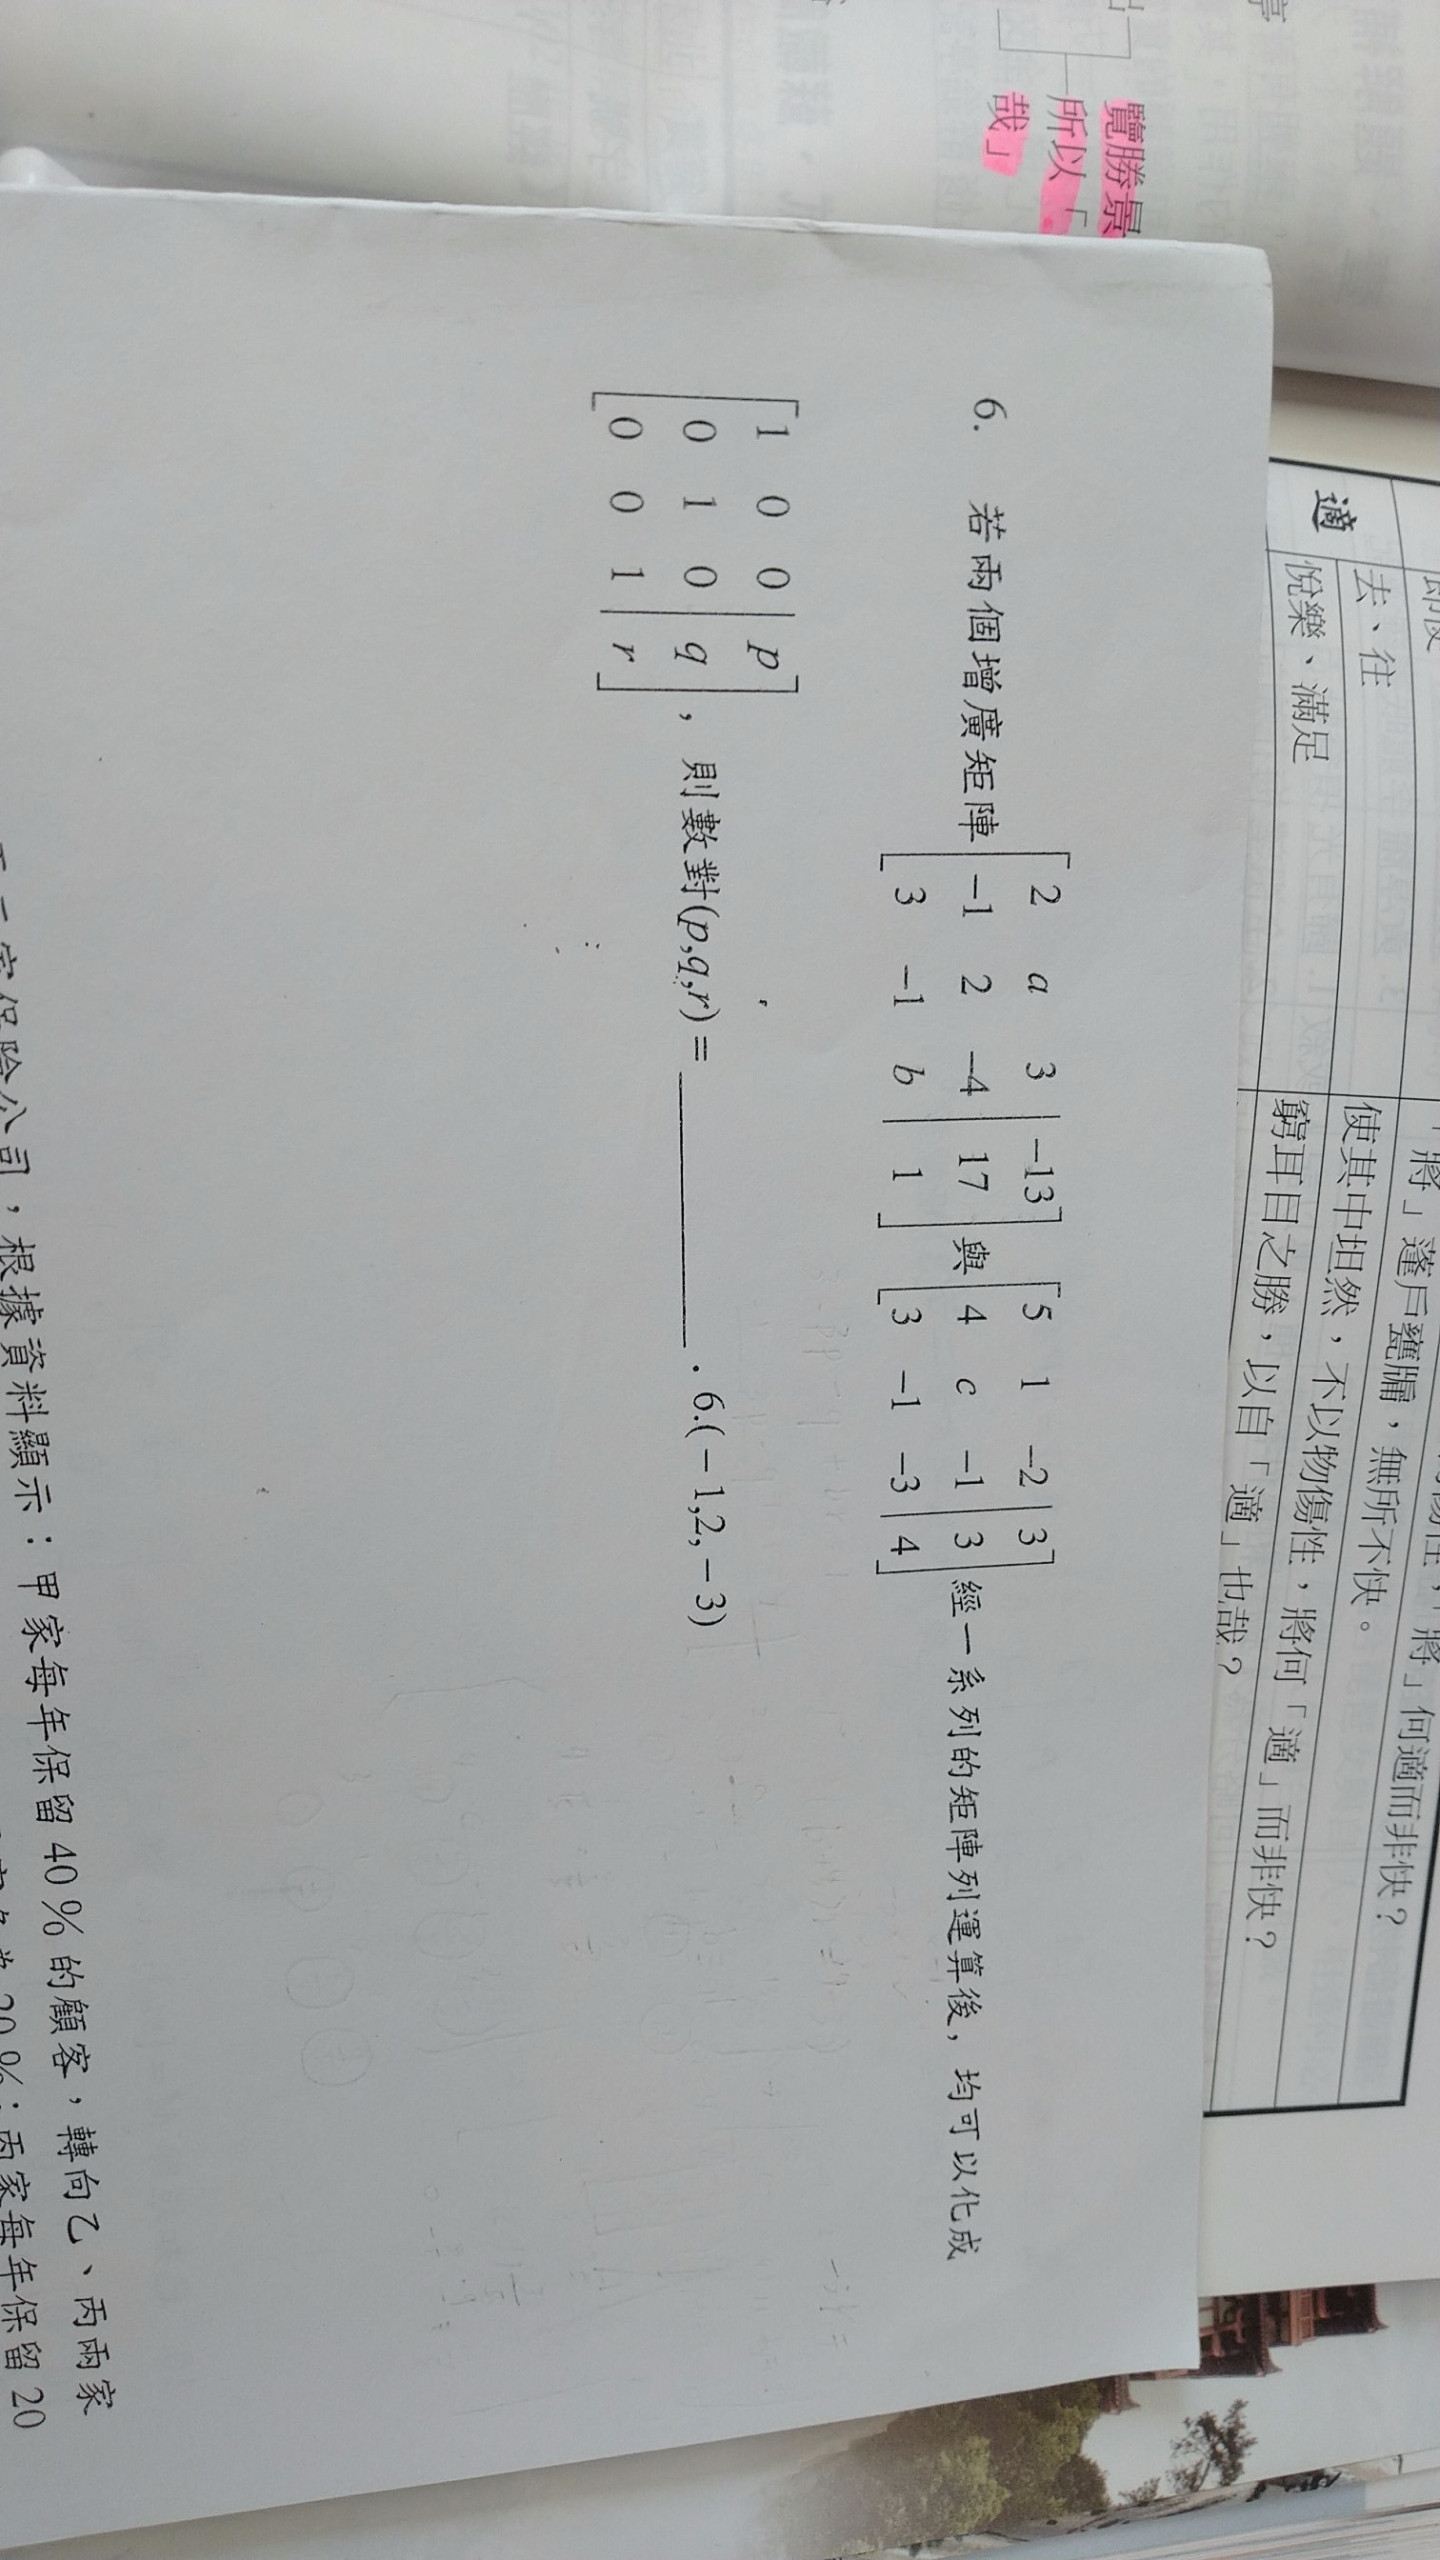 覽勝景
所以「
哉」
適
去、往
悅樂、滿足
使其中坦然，不以物傷性，將何「適」而非快？
窮耳目之勝，以自「適」也哉？
「將」蓬戶甕牖，無所不快。
6. 若兩個增廣矩陣 [2 a 3 | -13; -1 2 -4 | 17; 3 -1 b | 1] 與 [5 1 -2 | 3; 4 c -1 | 3; 3 -1 -3 | 4] 經一系列的矩陣列運算後，均可以化成
[1 0 0 | p; 0 1 0 | q; 0 0 1 | r]，則數對(p,q,r)=________. 6.(-1,2,-3)
保險公司，根據資料顯示：甲家每年保留 40% 的顧客，轉向乙、丙兩家
20%；丙家每年保留 20